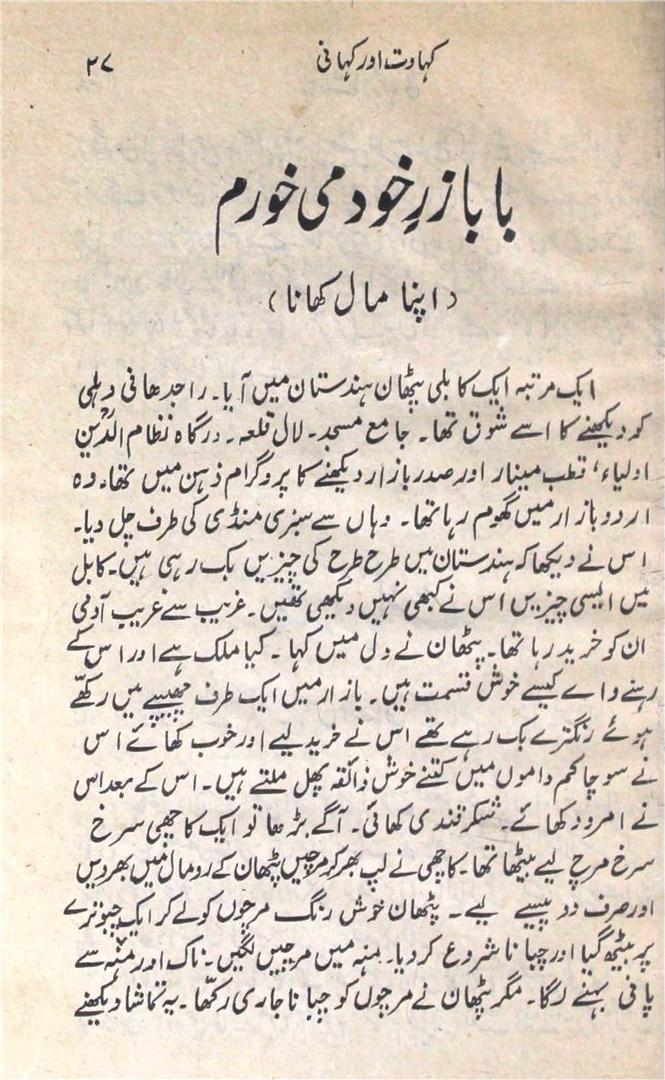 کہاوت اور کہانی
۲۷
بابا زرِ خود می خورم
(اپنا مال کھانا)
ایک مرتبہ ایک کابلی پٹھان ہندستان میں آیا۔ راجدھانی دہلی
کو دیکھنے کا اسے شوق تھا۔ جامع مسجد۔ لال قلعہ۔ درگاہ نظام الدّین
اولیاء، قطب مینار اور صدر بازار دیکھنے کا پروگرام ذہن میں تھا۔ وہ
اردو بازار میں گھوم رہا تھا۔ وہاں سے سبزی منڈی کی طرف چل دیا۔
اس نے دیکھا کہ ہندستان میں طرح طرح کی چیزیں بک رہی ہیں۔ کابل
میں ایسی چیزیں اس نے کبھی نہیں دیکھی تھیں۔ غریب سے غریب آدمی
ان کو خرید رہا تھا۔ پٹھان نے دل میں کہا۔ کیا ملک ہے اور اس کے
رہنے والے کیسے خوش قسمت ہیں۔ بازار میں ایک طرف چھیبے میں رکھّے
ہوئے رنگترے بک رہے تھے اس نے خرید لیے اور خوب کھائے اس
نے سوچا کم داموں میں کتنے خوش ذائقہ پھل ملتے ہیں۔ اس کے بعد اس
نے امرود کھائے۔ شکر قندی کھائی۔ آگے بڑھا تو ایک کاچھی سرخ
سرخ مرچ لیے بیٹھا تھا۔ کاچھی نے لپ بھر کر مرچیں پٹھان کے رومال میں بھر دیں
اور صرف دو پیسے لیے۔ پٹھان خوش رنگ مرچوں کو لے کر ایک چبوترے
پر بیٹھ گیا اور چبانا شروع کر دیا۔ منہ میں مرچیں لگیں۔ ناک اور منہ سے
پانی بہنے لگا۔ مگر پٹھان نے مرچوں کو چبانا جاری رکھّا۔ یہ تماشا دیکھنے